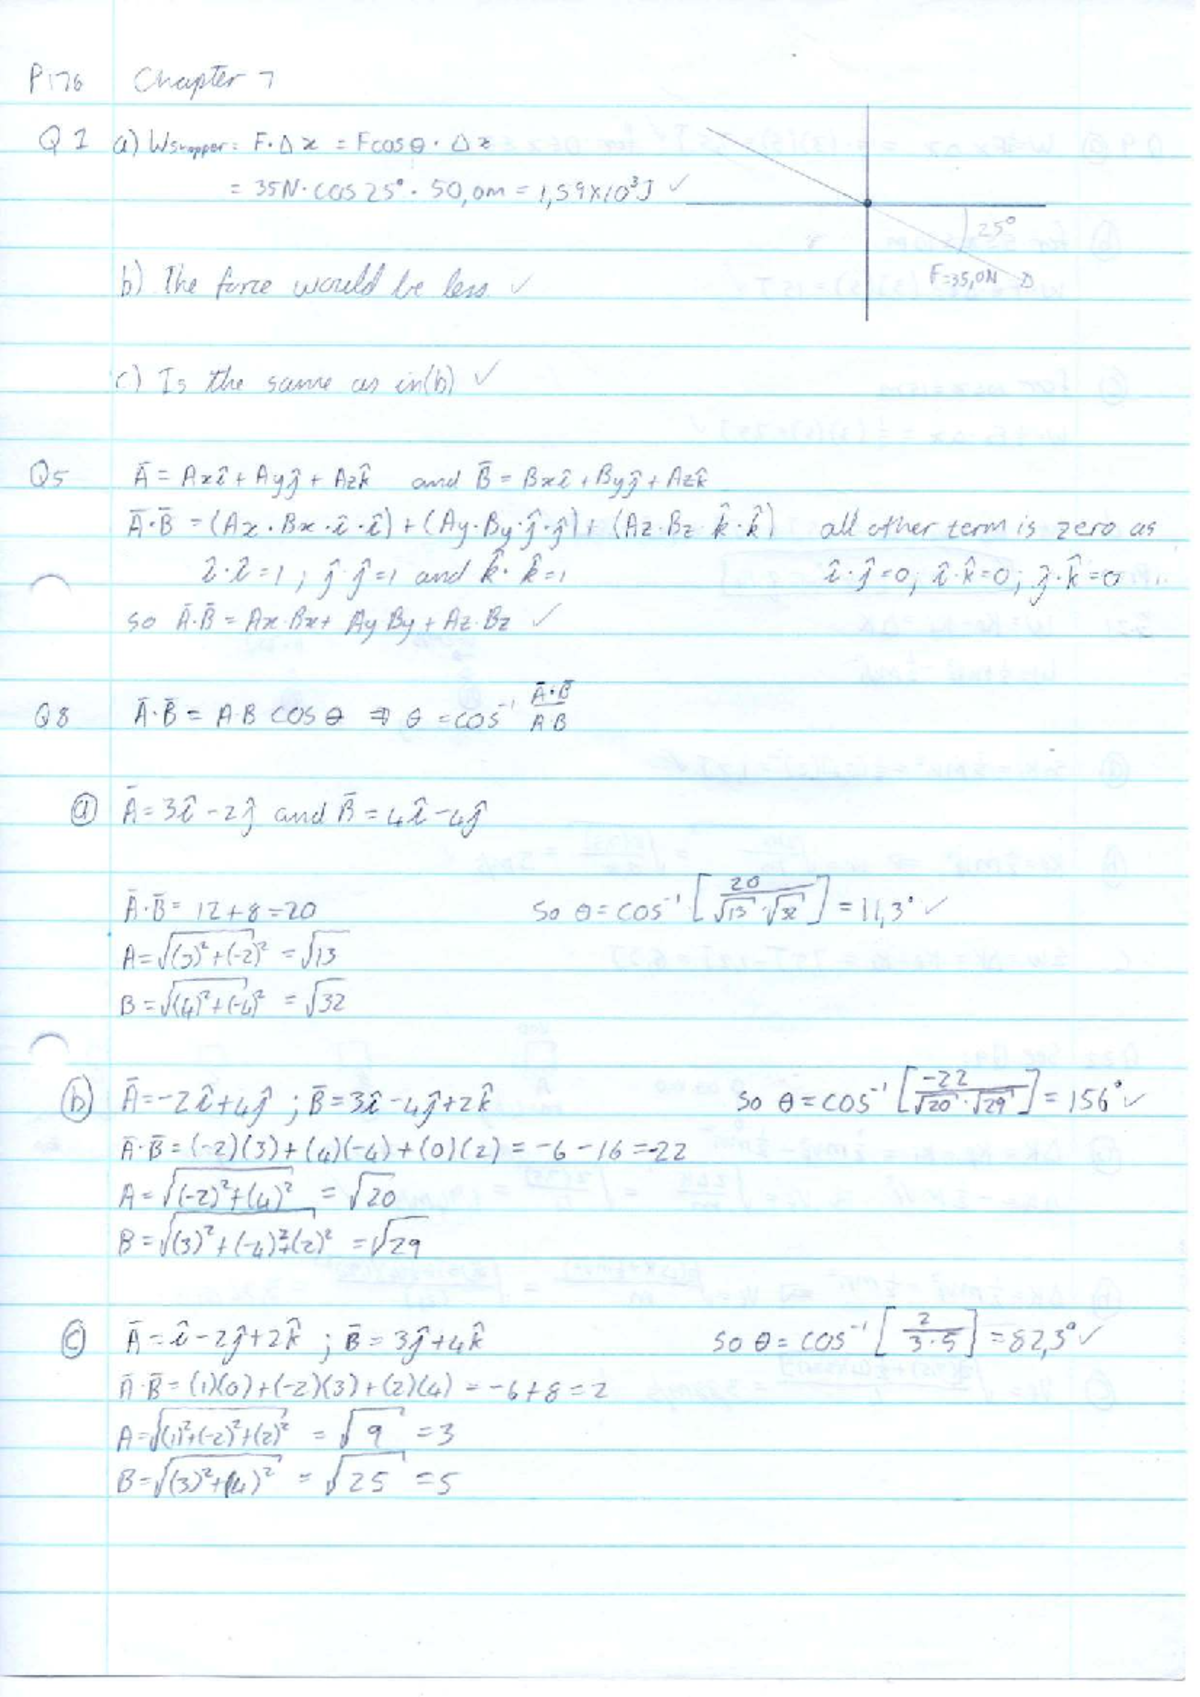 P176 Chapter 7
Q1 a) Wshopper = F·Δx = Fcosθ·Δx
= 35N·cos25°·50,0m = 1,59×10³J ✓
25°
F=35,0N
b) The force would be less. ✓
c) Is the same as in(b) ✓
Q5 Ā = Axî + Ayĵ + Azk̂ and B̄ = Bxî + Byĵ + Azk̂
Ā·B̄ = (Ax·Bx·î·î) + (Ay·By·ĵ·ĵ) + (Az·Bz k̂·k̂) all other term is zero as
î·î=1 ; ĵ·ĵ=1 and k̂·k̂=1 î·ĵ=0; î·k̂=0; ĵ·k̂=0
so Ā·B̄ = Ax·Bx + Ay By + Az·Bz ✓
Q8 Ā·B̄ = A·B cos θ ⇒ θ = cos⁻¹ Ā·B̄/A·B
(a) Ā = 3î − 2ĵ and B̄ = 4î − 4ĵ
Ā·B̄ = 12 + 8 = 20 So θ = cos⁻¹ [20/√13·√32] = 11,3° ✓
A = √(3)² + (−2)² = √13
B = √(4)² + (−4)² = √32
(b) Ā = −2î + 4ĵ ; B̄ = 3î − 4ĵ + 2k̂ So θ = cos⁻¹ [−22/√20·√29] = 156° ✓
Ā·B̄ = (−2)(3) + (4)(−4) + (0)(2) = −6 − 16 = −22
A = √(−2)² + (4)² = √20
B = √(3)² + (−4)² + (2)² = √29
(c) Ā = î − 2ĵ + 2k̂ ; B̄ = 3ĵ + 4k̂ So θ = cos⁻¹ [2/3·5] = 82,3° ✓
Ā·B̄ = (1)(0) + (−2)(3) + (2)(4) = −6 + 8 = 2
A = √(1)² + (−2)² + (2)² = √9 = 3
B = √(3)² + (4)² = √25 = 5